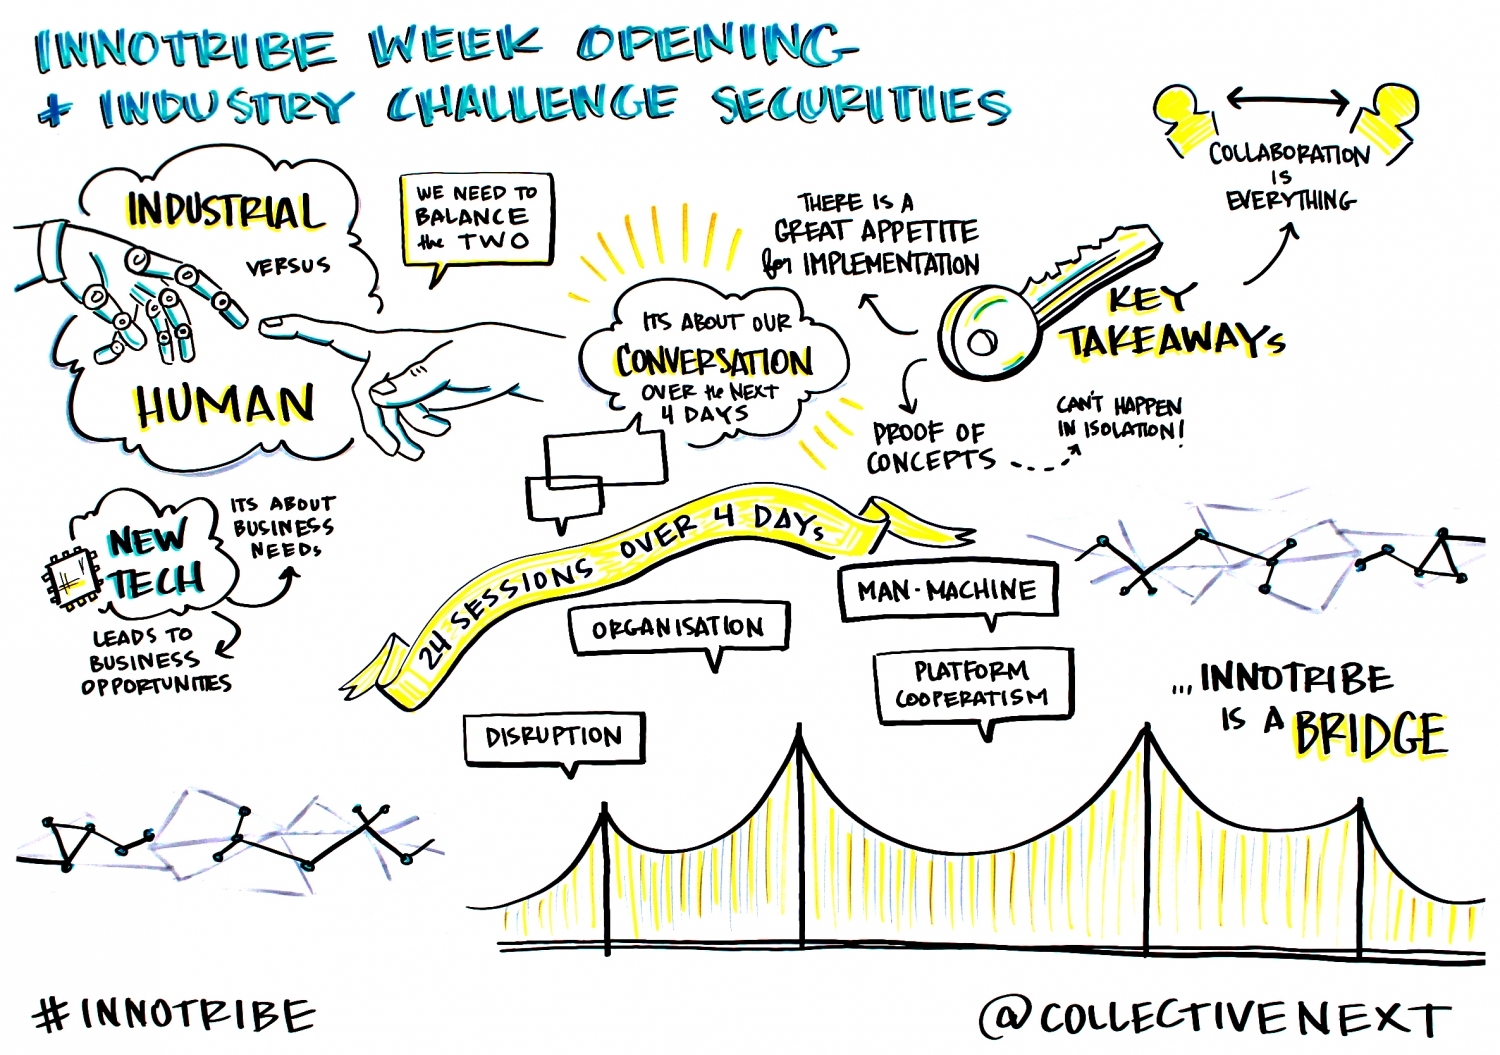 INNOTRIBE WEEK OPENING
+ INDUSTRY CHALLENGE SECURITIES
INDUSTRIAL
VERSUS
HUMAN
WE NEED TO
BALANCE
the TWO
ITS ABOUT OUR
CONVERSATION
OVER the NEXT
4 DAYS
THERE IS A
GREAT APPETITE
for IMPLEMENTATION
KEY
TAKEAWAYS
COLLABORATION
IS
EVERYTHING
PROOF OF
CONCEPTS
CAN'T HAPPEN
IN ISOLATION!
NEW
TECH
ITS ABOUT
BUSINESS
NEEDS
LEADS TO
BUSINESS
OPPORTUNITIES
24 SESSIONS OVER 4 DAYS
DISRUPTION
ORGANISATION
MAN-MACHINE
PLATFORM
COOPERATISM
...INNOTRIBE
IS A BRIDGE
#INNOTRIBE
@COLLECTIVENEXT